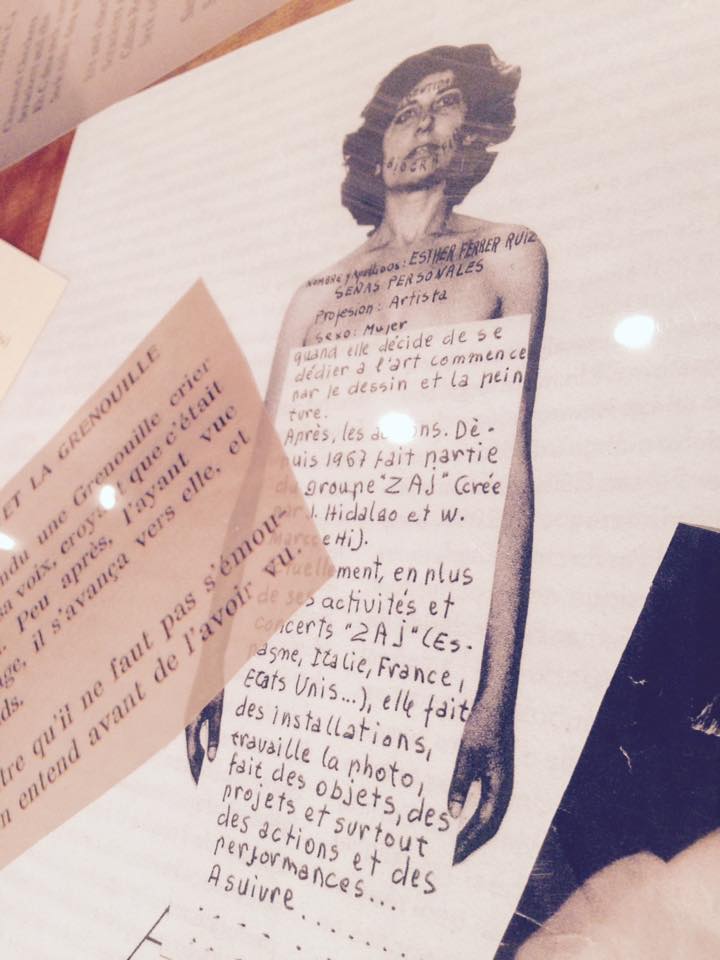 NOMBRE y Apellidos: ESTHER FERRER RUIZ
SEÑAS PERSONALES
Profesion: Artista
Sexo: Mujer
quand elle décide de se
dédier a l'art commence
par le dessin et la pein
ture.
Après, les actions. Dè-
puis 1967 fait partie
du groupe "ZAJ" (crée
par J. Hidalgo et W.
Marchetti).
Actuellement, en plus
de ses activités et
concerts "ZAJ" (Es-
pagne, Italie, France,
Etats Unis...), elle fait
des installations,
travaille la photo,
fait des objets, des
projets et surtout
des actions et des
performances...
A suivre..........
ET LA GRENOUILLE
ndu une Grenouille crier
sa voix, croyant que c'était
Peu après, l'ayant vue
ge, il s'avança vers elle, et
ds.
tre qu'il ne faut pas s'émou-
n entend avant de l'avoir vu.